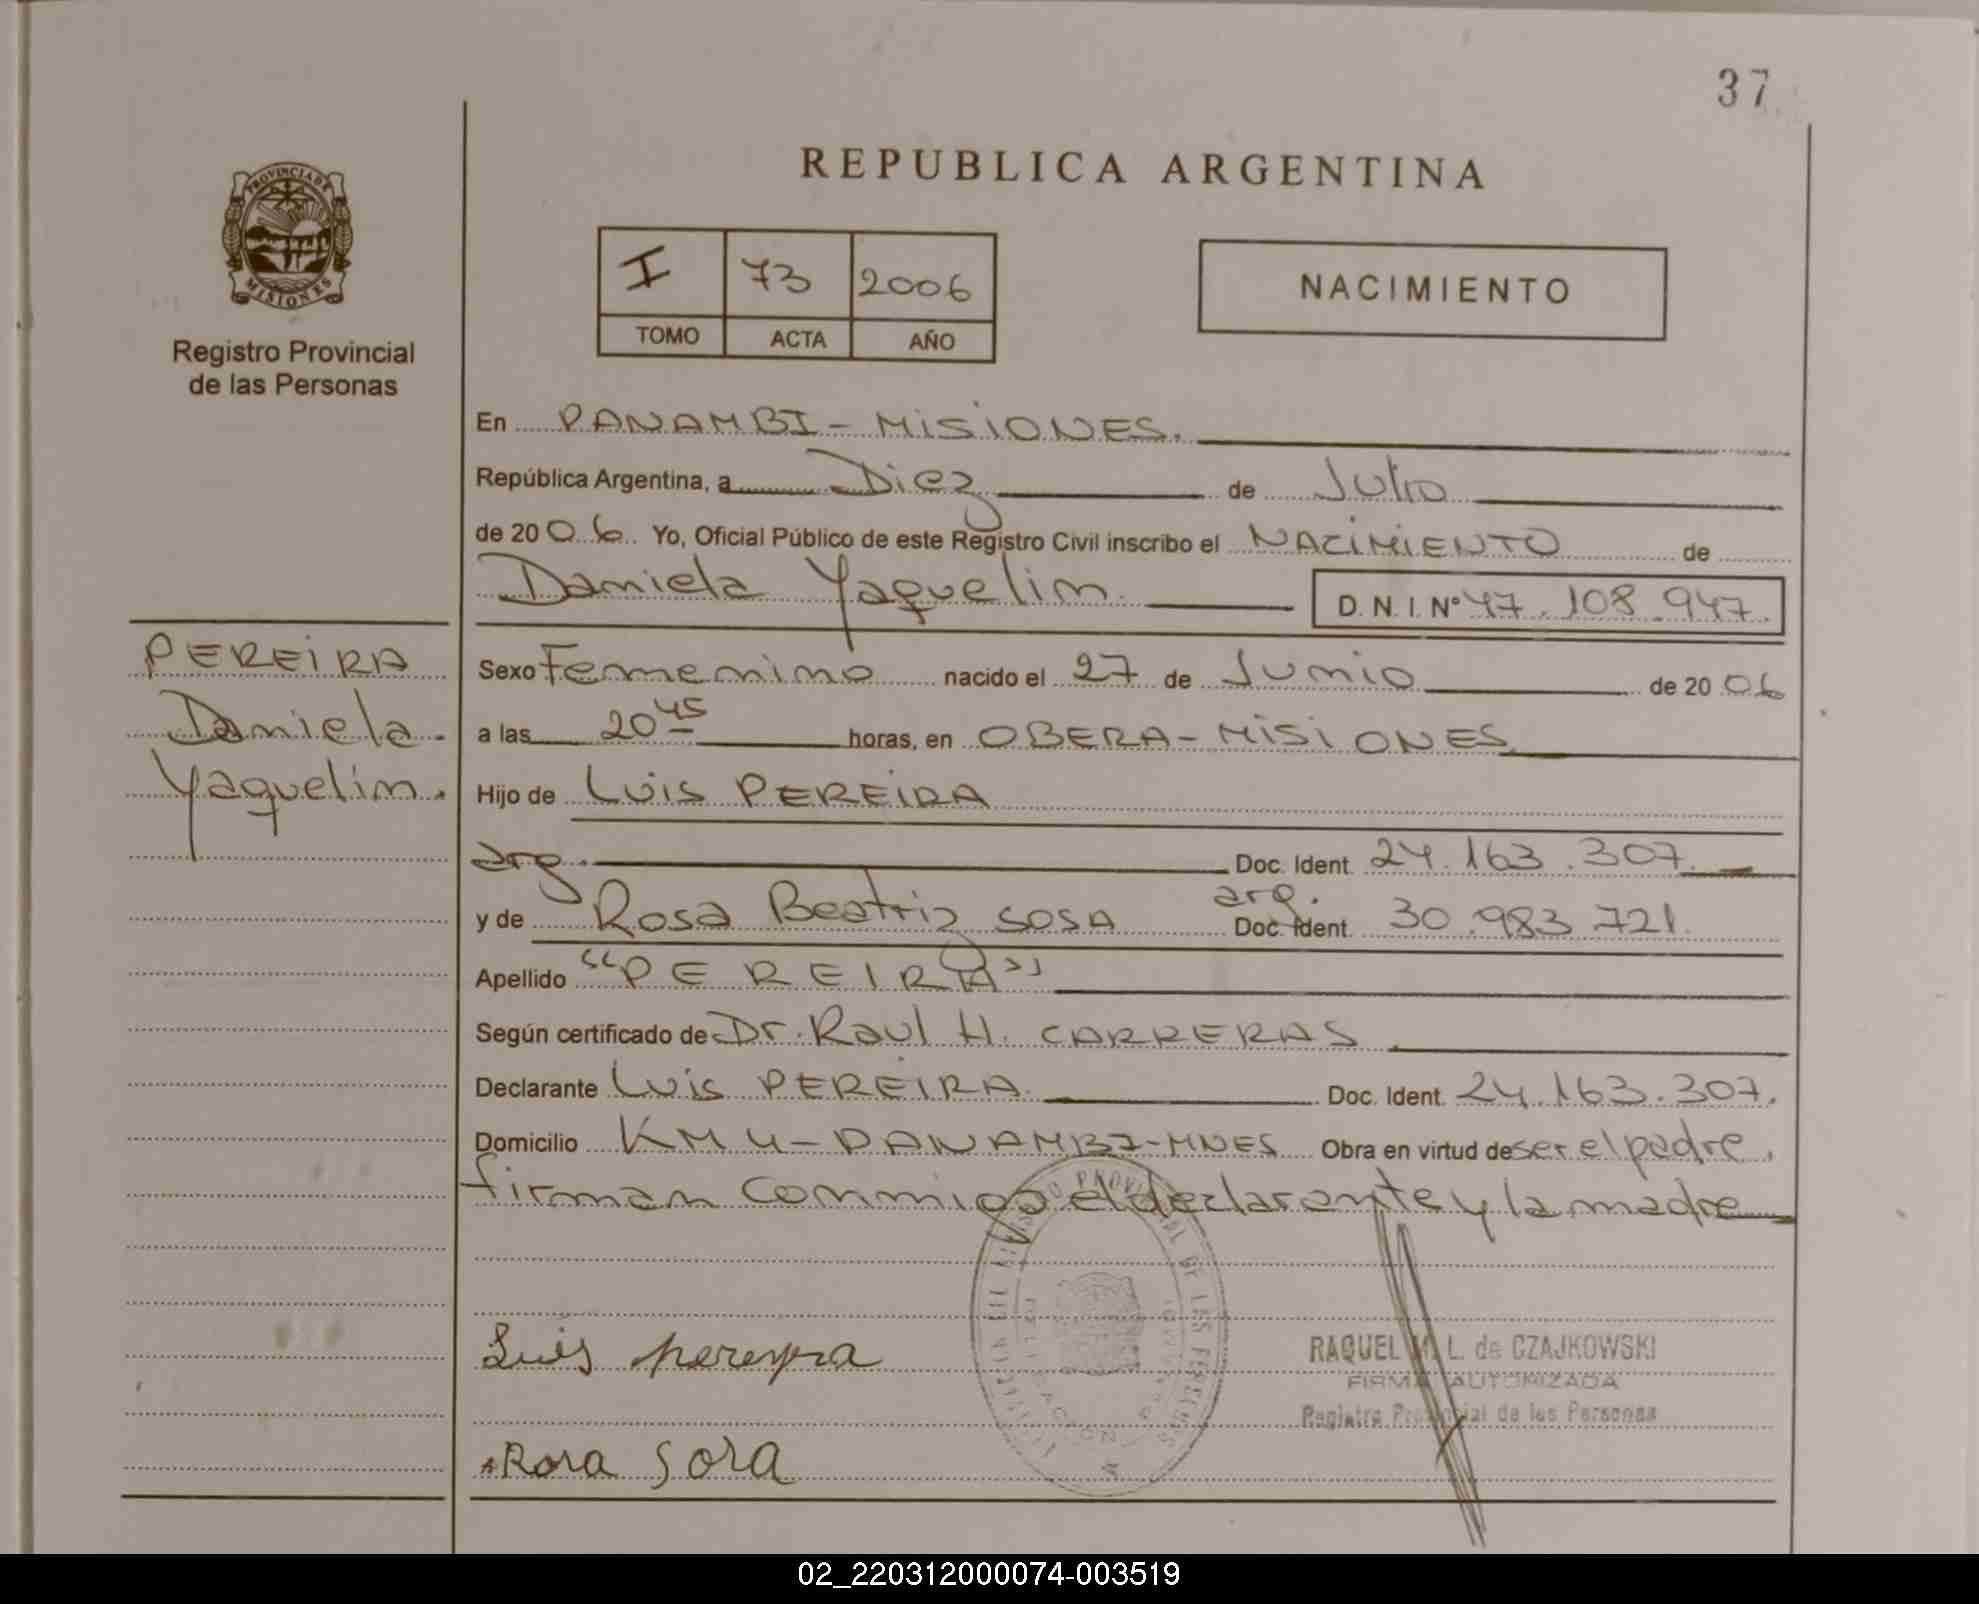 37
REPUBLICA ARGENTINA
PROVINCIA DE
MISIONES
Registro Provincial
de las Personas
I 73 2006
TOMO ACTA AÑO
NACIMIENTO
En PANAMBI - MISIONES.
República Argentina, a Diez de Julio
de 2006. Yo, Oficial Público de este Registro Civil inscribo el NACIMIENTO de
Daniela Yaquelin. D. N. I. Nº 47.108.947.
PEREIRA
Daniela
Yaquelin.
Sexo Femenino nacido el 27 de Junio de 2006
a las 20 45 horas, en OBERA - MISIONES
Hijo de Luis PEREIRA
arg. Doc. Ident. 24.163.307.
y de Rosa Beatriz SOSA arg. Doc. Ident. 30.983.721.
Apellido "PEREIRA"
Según certificado de Dr. Raul H. CARRERAS
Declarante Luis PEREIRA. Doc. Ident. 24.163.307.
Domicilio KM 4 - PANAMBI - MNES Obra en virtud de ser el padre.
firman conmigo el declarante y la madre
Luis pereyra
RAQUEL M. L. de CZAJKOWSKI
FIRMA AUTORIZADA
Registro Provincial de las Personas
Rosa Sosa
02_220312000074-003519